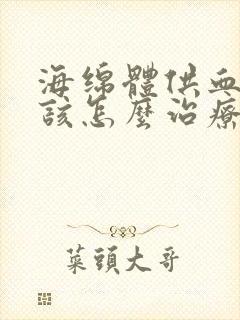 海綿體供血
該怎麼治療
菜頭大哥